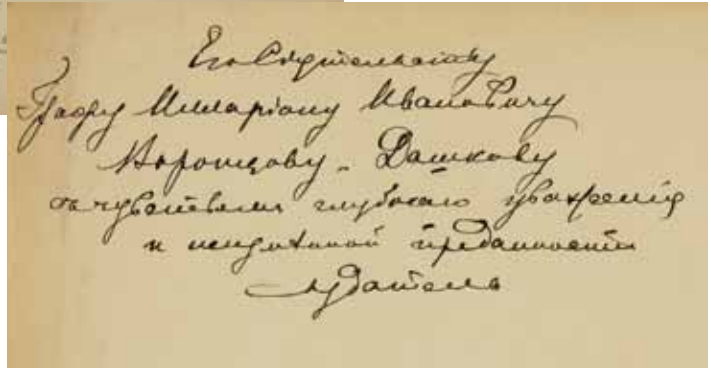 Его Сіятельству
Графу Илларіону Ивановичу
Воронцову-Дашкову
съ чувствами глубокаго уваженія
и искренной преданности
Издатель